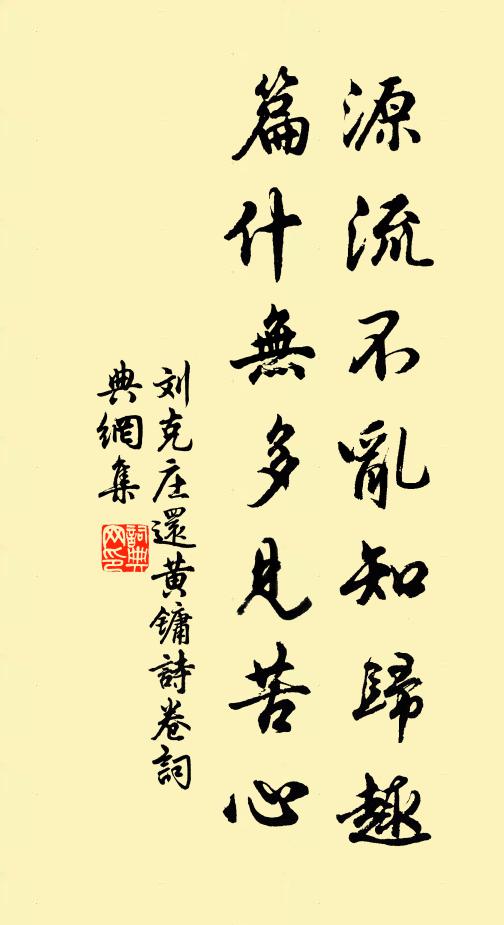 源流不亂知歸趣
篇什無多見苦心
刘克庄還黄鏞詩卷詞
典網集
詞典
网印